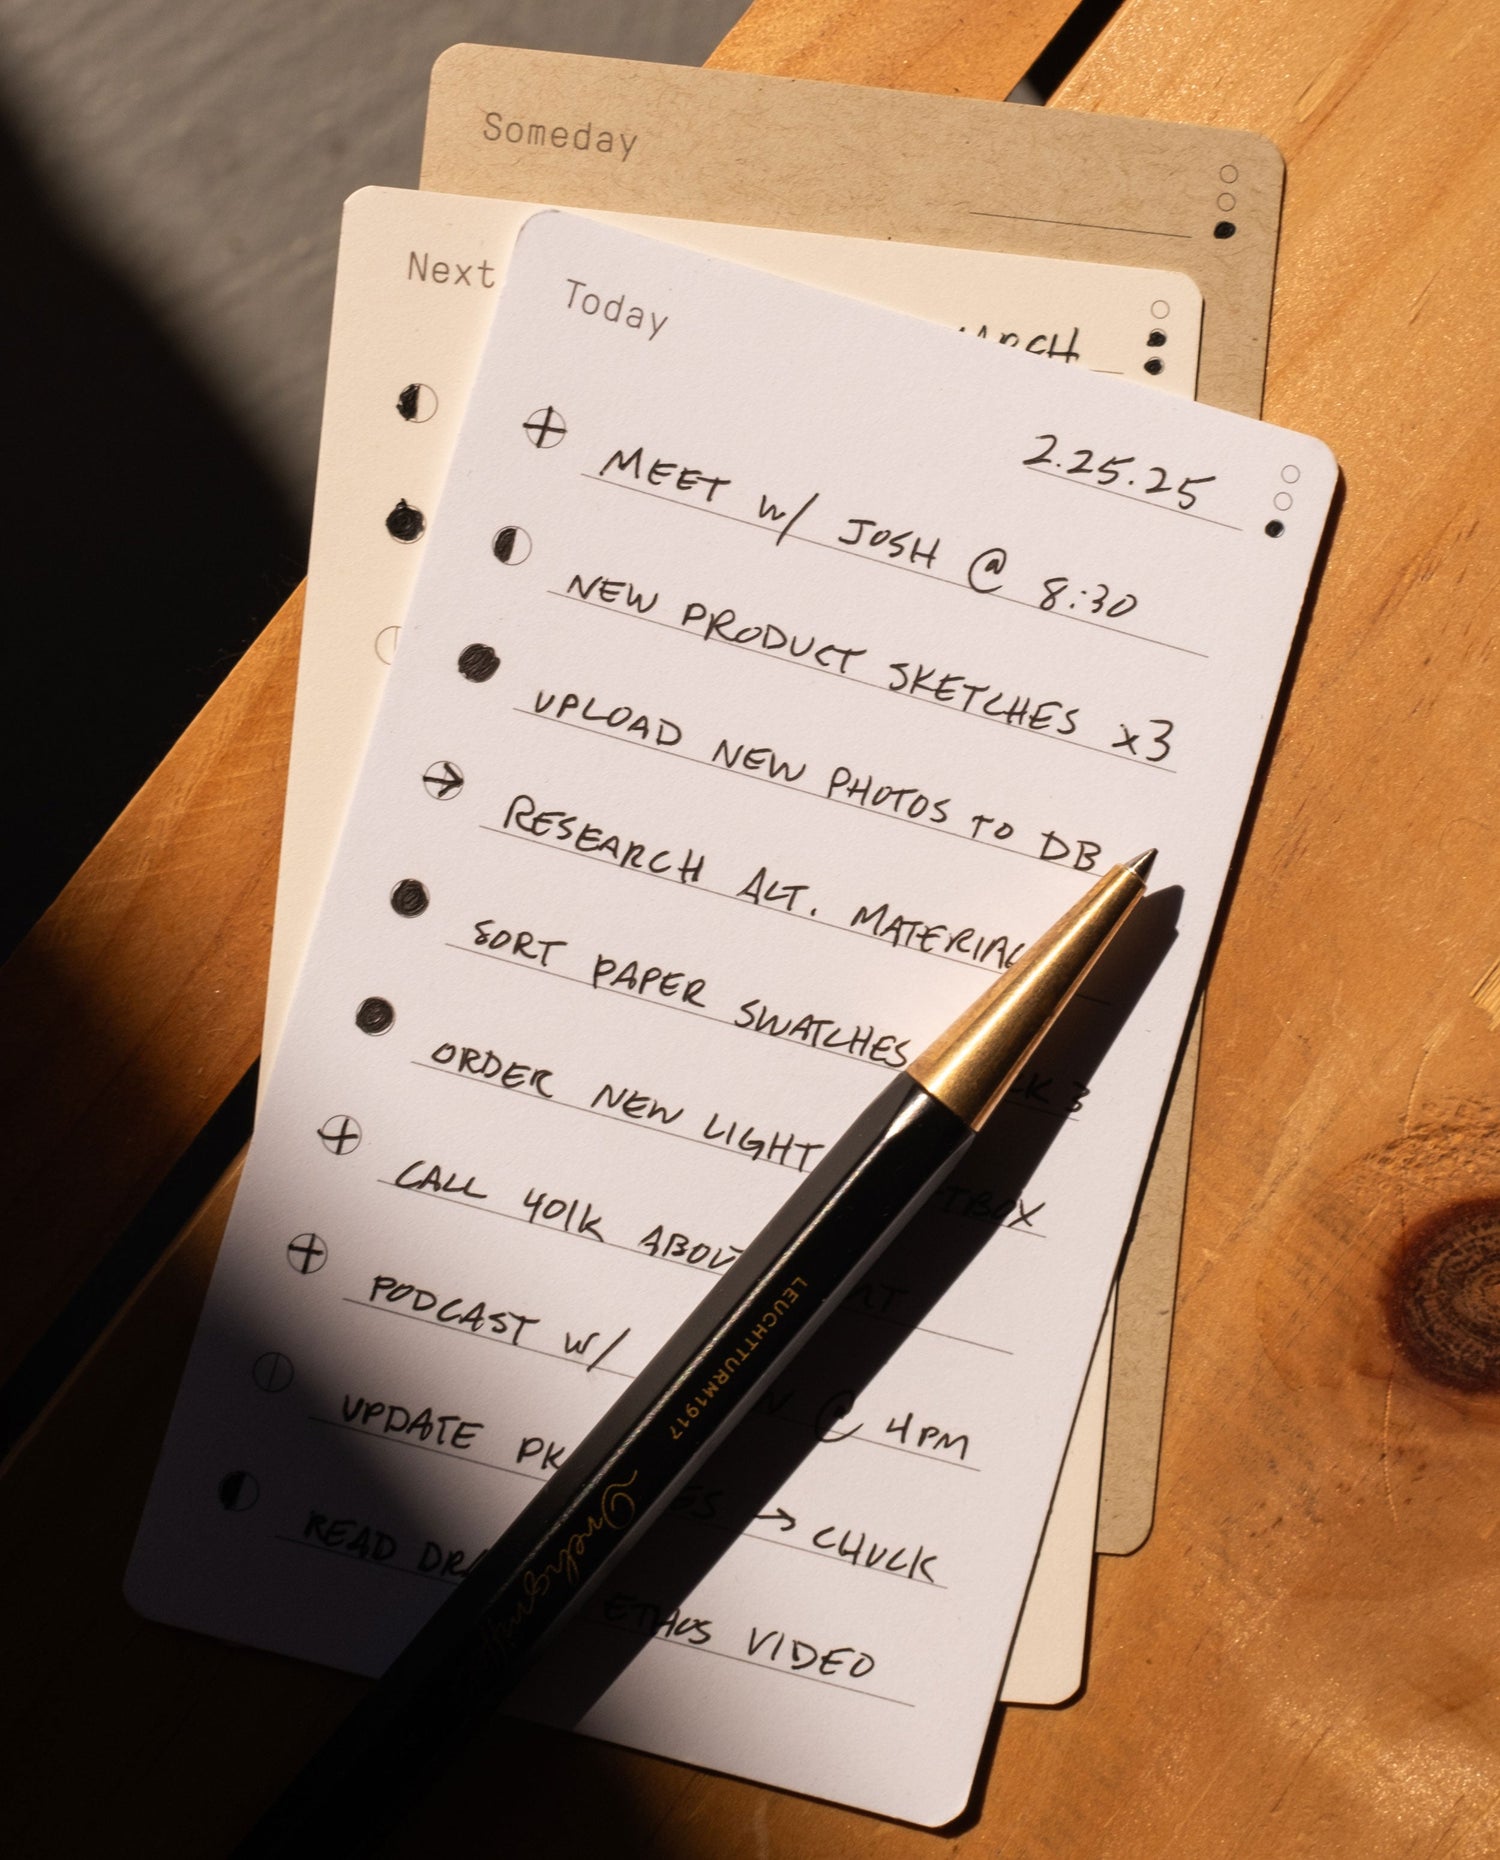 Someday
Next
Today
2.25.25
MEET w/ JOSH @ 8:30
NEW PRODUCT SKETCHES x3
UPLOAD NEW PHOTOS TO DB
RESEARCH ALT.
SORT PAPER SWATCHES 3
ORDER NEW LIGHT TBOX
CALL 401K
PODCAST w/ @ 4PM
UPDATE → CHUCK
READ ETHOS VIDEO
LEUCHTTURM1917